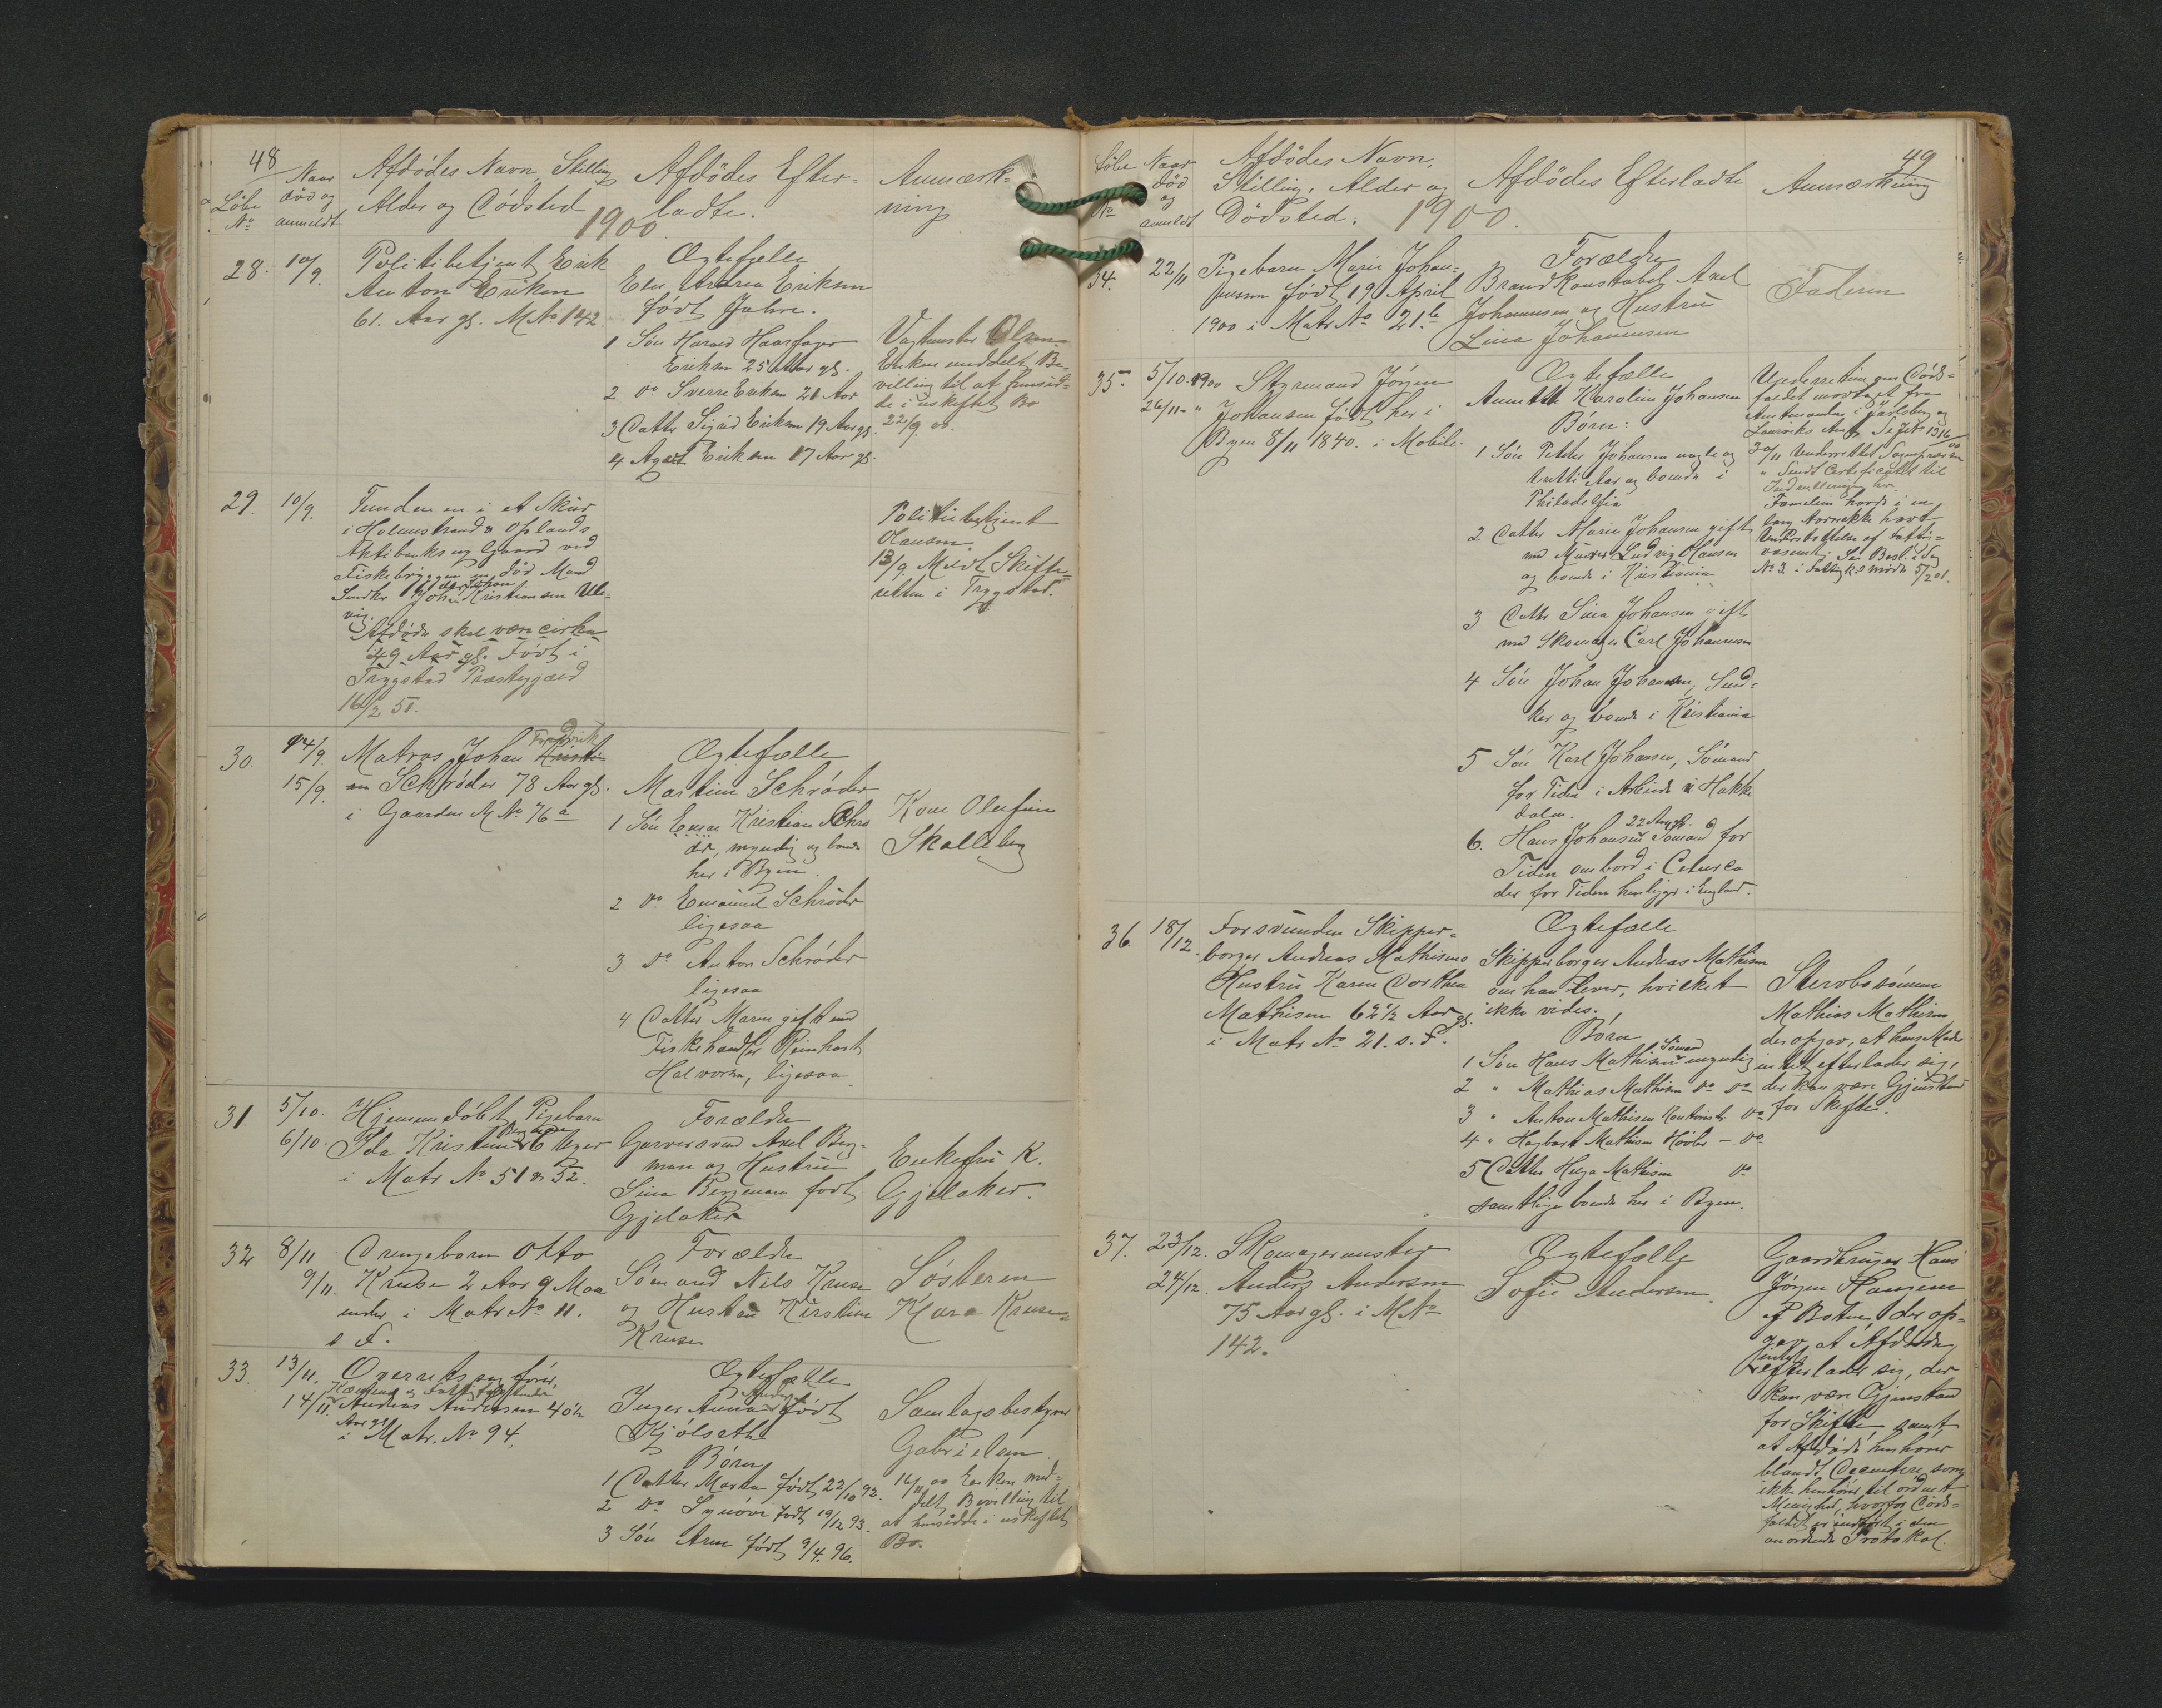 48
Løbe No
Naar død og anmeldt
Afdødes Navn, Stilling
Alder og Dødsted
Afdødes Efter-
ladte.
Anmærk-
ning
1900
28. 10/9.
Politibetjent Erik
Anton Eriksen
61. Aar gl. M No 142.
Ægtefælle
Eriksen
født Jahre.
1 Søn Harald Haarfager
Eriksen 25 Aar gl.
2 do Sverre Eriksen 21 Aar
3 Datter Sigrid Eriksen 19 Aar gl.
4 Eriksen 17 Aar gl.
Vagtmester Olsen
Enken meddelt Be-
villing til at hensid-
de i uskiftet Bo
22/9 00.
29. 10/9.
Funden en i et Skur
i Holmestrand & Oplands
Aktiebanks Gaard ved
Fiskebryggen død Mand
Snedker Johan Kristiansen Ulle-
vig.
Afdøde skal være cirka
49 Aar gl. Født i
Trygstad Præstegjæld
16/2 51.
Politiebetjent
Hansen.
13/9. Meldt Skifte-
retten i Trygstad.
30. 14/9.
15/9.
Matros Johan Fredrik
Schrøder 78 Aar gl.
i Gaarden M No 76 a
Ægtefælle
Martine Schrøder
1 Søn Einar Kristian Schrø
der, myndig og boende
her i Byen.
2 do Edmund Schrøder
ligesaa
3 do Anton Schrøder
ligesaa
4 Datter Marie gift med
Fiskehandler Reinhart
Halvorsen, ligesaa
Kone Olefine
Skalleberg
31. 5/10.
6/10.
Hjemmedøbt Pigebarn
Ida Kristine Bergman 6 Uger
i Matr No 51 & 52.
Forældre
Garversvend Axel Berg-
man og Hustru
Lina Bergman født
Gjelaker
Enkefru K.
Gjelaker.
32 8/11
9/11.
Drengebarn Otto
Kruse 2 Aar 9 Maa
neder i Matr No 11.
s F.
Forældre
Sømand Nils Kruse
og Hustru Kirstine
Kruse
Søsteren
Klara Kruse
33. 13/11.
14/11.
Overretssagfører,
Kæmner og Fattigforstander
Andreas Andersen 40½
Aar gl
i Matr. No 94.
Ægtefælle
Inger Anna Andersen født
Kjølseth
Børn
1 Datter Marta født 22/10 92.
2 do Synøve født 19/12 93.
3 Søn Arne født 9/4. 96.
Samlagsbestyrer
Gabrielsen.
16/11 00 Enken med-
delt Bevilling til
at hensidde i uskiftet
Bo.
49
Løbe No
Naar død og anmeldt
Afdødes Navn,
Stilling, Alder og
Dødsted.
Afdødes Efterladte
Anmærkning
1900.
34. 22/11
Pigebarn Marie Johan-
nesen født 19 April
1900 i Matr No 21. b
Forældre
Brandkonstabel Axel
Johannesen og Hustru
Lina Johannesen
Faderen
35. 5/10. 1900
26/11 - "
Styrmand Jørgen
Johansen født her i
Byen 8/11 1840. i Mobile.
Ægtefælle
Annette Karoline Johansen
Børn:
1 Søn Petter Johansen nogle og
tretti Aar og boende i
Philadelfia
2 Datter Marie Johansen gift
med Murer Ludvig Hansen
og boende i Kristiania
3 Datter Lina Johansen gift
med Skomager Carl Johannesen
4 Søn Johan Johansen, Sned-
ker og boende i Kristiania
5 Søn Karl Johansen, Sømand
for Tiden i Arbeide i Hakke
dalen.
6. Hans Johansen 22 Aar gl. Sømand for
Tiden ombord i
der for Tiden henligger i England.
Underretningen Døds-
faldet modtaget fra
Amtmanden i Jarlsberg og
Laurviks Amt Se Jr No 1316/00
30/11 Underrettet Sognepræsten
" Sendt Certificatet til
her.
Familien havde i en
lang Aarrække havt
Understøttelse af Fattig-
væsenet. Se Besl. i Sag
No 3. i Fattigk.s møde 5/2 01.
36. 18/12.
Forsvunden Skipper-
borger Andreas Mathisens
Hustru Karen Dorthea
Mathisen 62½ Aar gl.
i Matr No 21. s. F.
Ægtefælle
Skipperborger Andreas Mathisen
om han lever, hvilket
ikke vides.
Børn
1 Søn Hans Mathisen Sømand myndig
2 " Mathias Mathisen do do
3 " Anton Mathisen Kontorist do
4 " Hagbart Mathisen - do
5 Datter Helga Mathisen do
samtlige boende her i Byen.
Stervbosønnen
Mathias Mathisen
der opgav, at hans Moder
intet efterlader sig,
der kan være Gjenstand
for Skifte.
37. 23/12.
24/12.
Skomagermester
Anders Andersen
75 Aar gl. i M No
142.
Ægtefælle
Sofie Andersen.
Gaardbruger Hans
Jørgen Hansen
af Botne der op-
gav at Afdøde
intet
efterlader sig, der
kan være Gjenstand
for Skifte samt
at Afdøde henhører
blandt Dissentere som
ikke henhører til ordnet
Menighed, hvorfor Døds-
faldet er indført i den
anordnede Protokol.